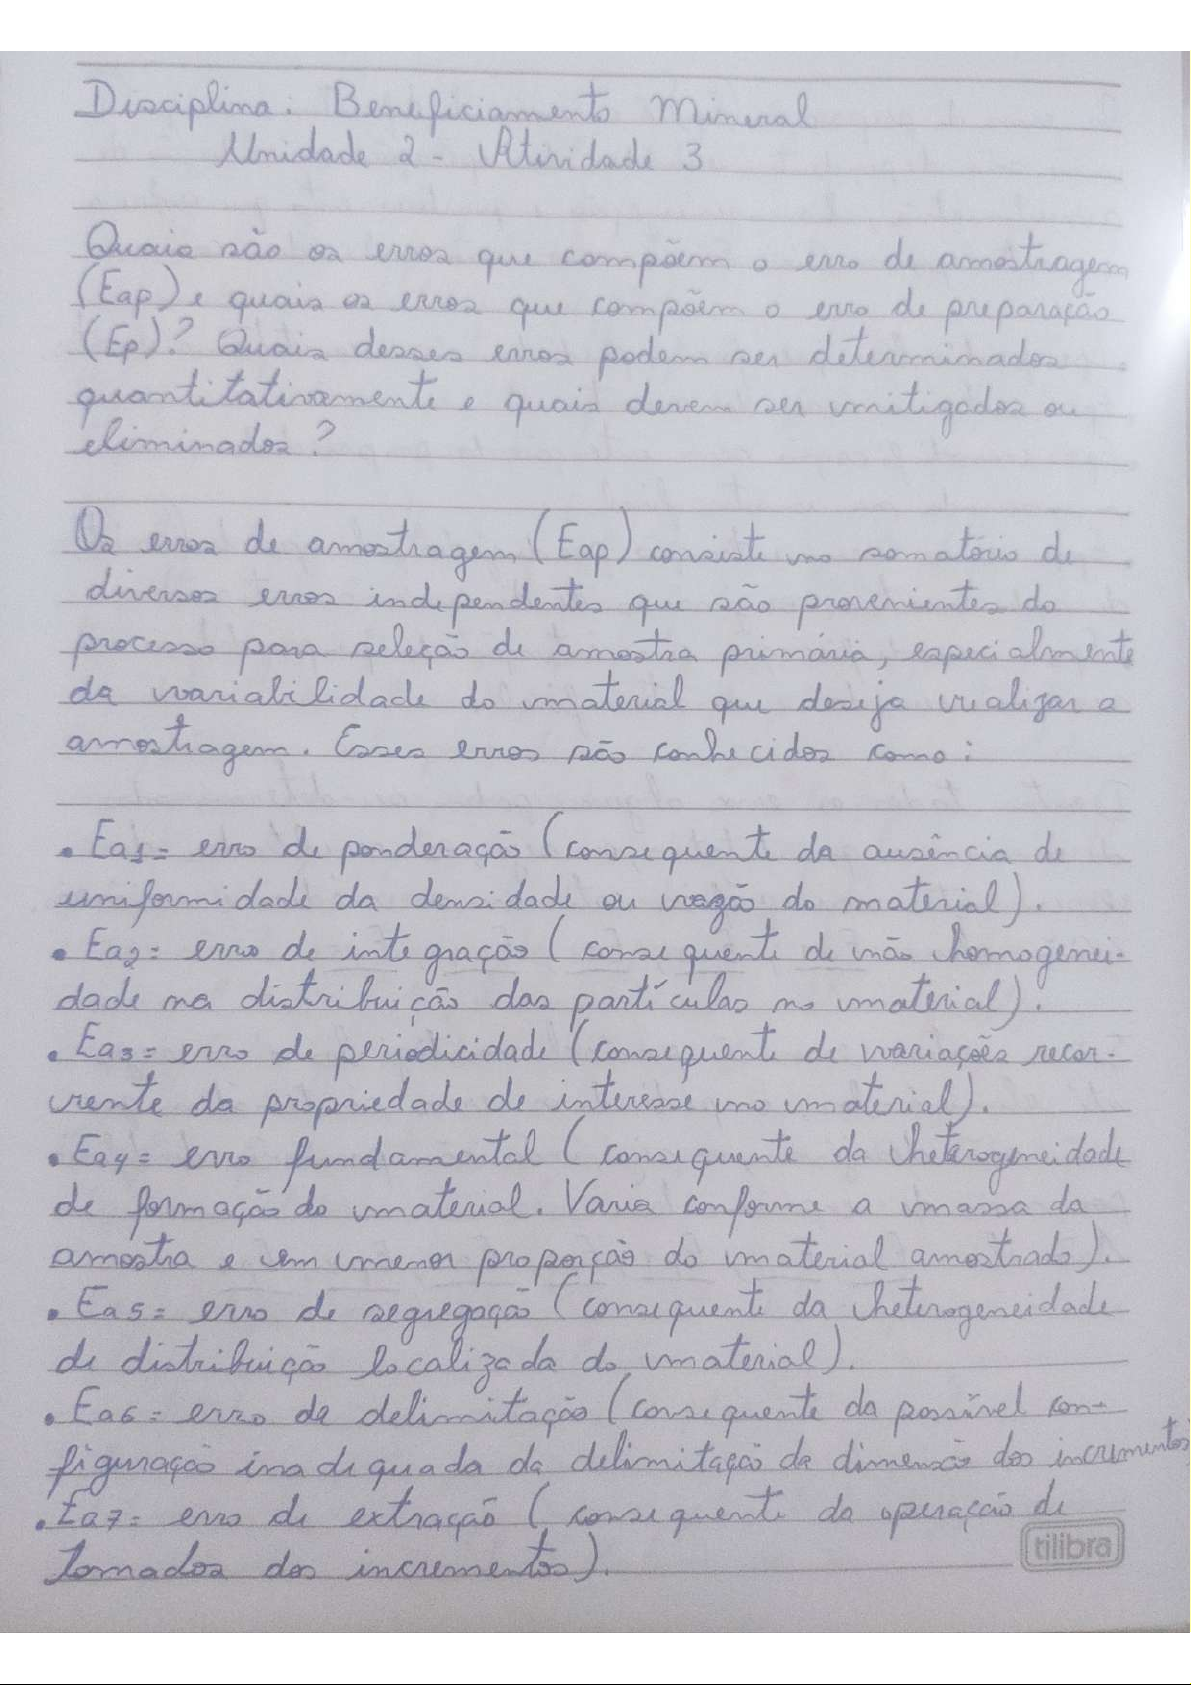 Disciplina: Beneficiamento Mineral
Unidade 2 - Atividade 3
Quais são os erros que compõem o erro de amostragem
(Eap) e quais os erros que compõem o erro de preparação
(Ep)? Quais desses erros podem ser determinados
quantitativamente e quais devem ser mitigados ou
eliminados?
Os erros de amostragem (Eap) consiste no somatório de
diversos erros independentes que são provenientes do
processo para seleção de amostra primária, especialmente
da variabilidade do material que deseja realizar a
amostragem. Esses erros são conhecidos como:
• Ea1= erro de ponderação (consequente da ausência de
uniformidade da densidade ou vazão do material).
• Ea2= erro de integração (consequente de não homogenei-
dade na distribuição das partículas no material).
• Ea3= erro de periodicidade (consequente de variações recor-
rente da propriedade de interesse no material).
• Ea4= erro fundamental (consequente da heterogeneidade
de formação do material. Varia conforme a massa da
amostra e em menor proporção do material amostrado).
• Ea5= erro de segregação (consequente da heterogeneidade
de distribuição localizada do material).
• Ea6= erro de delimitação (consequente da possível con-
figuração inadequada da delimitação da dimensão dos incrementos)
• Ea7= erro de extração (consequente da operação de
tomados dos incrementos).
tilibra